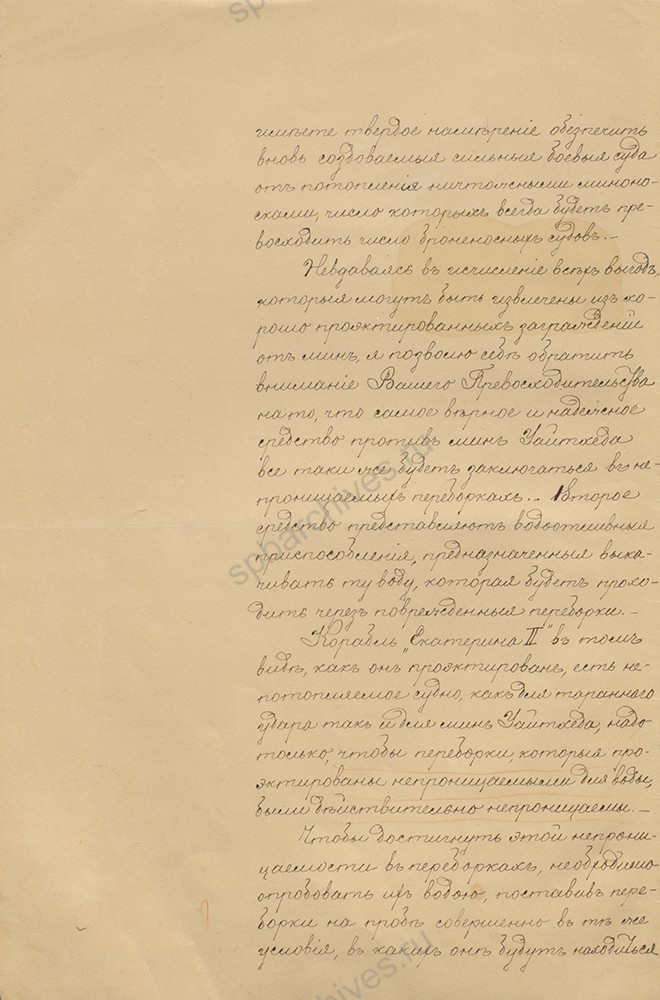 имѣете твердое намѣреніе обезпечить
вновь создоваемыя сильныя боевыя суда
отъ потопленія ничтожными миноно-
сками, число которыхъ всегда будетъ пре-
восходить число броненосныхъ судовъ. –
Невдаваясь въ исчисленіе всѣхъ выгодъ,
которыя могутъ быть извлечены изъ хо-
рошо проэктированныхъ загражденій
отъ минъ, я позволю себѣ обратить
вниманіе Вашего Превосходительства
на то, что самое вѣрное и надежное
средство противъ минъ Уайтхеда
все таки же будетъ заключаться въ не-
проницаемыхъ переборкахъ. – Второе
средство представляютъ водоотливныя
приспособленія, предназначенныя выка-
чивать ту воду, которая будетъ прохо-
дить черезъ поврежденныя переборки. –
Корабль „Екатерина II" въ томъ
видѣ, какъ онъ проэктированъ, есть не-
потопляемое судно, какъ для тараннаго
удара такъ и для минъ Уайтхеда, надо
только, чтобы переборки, которыя про-
эктированы непроницаемыми для воды,
были дѣйствительно непроницаемы. –
Чтобы достигнуть этой непрони-
цаемости въ переборкахъ, необходимо
опробовать ихъ водою, поставивъ пере-
борки на пробѣ совершенно въ тѣ же
условія, въ какихъ онѣ будутъ находиться
spbarchives.ru
spbarchives.ru
spbarchives.ru